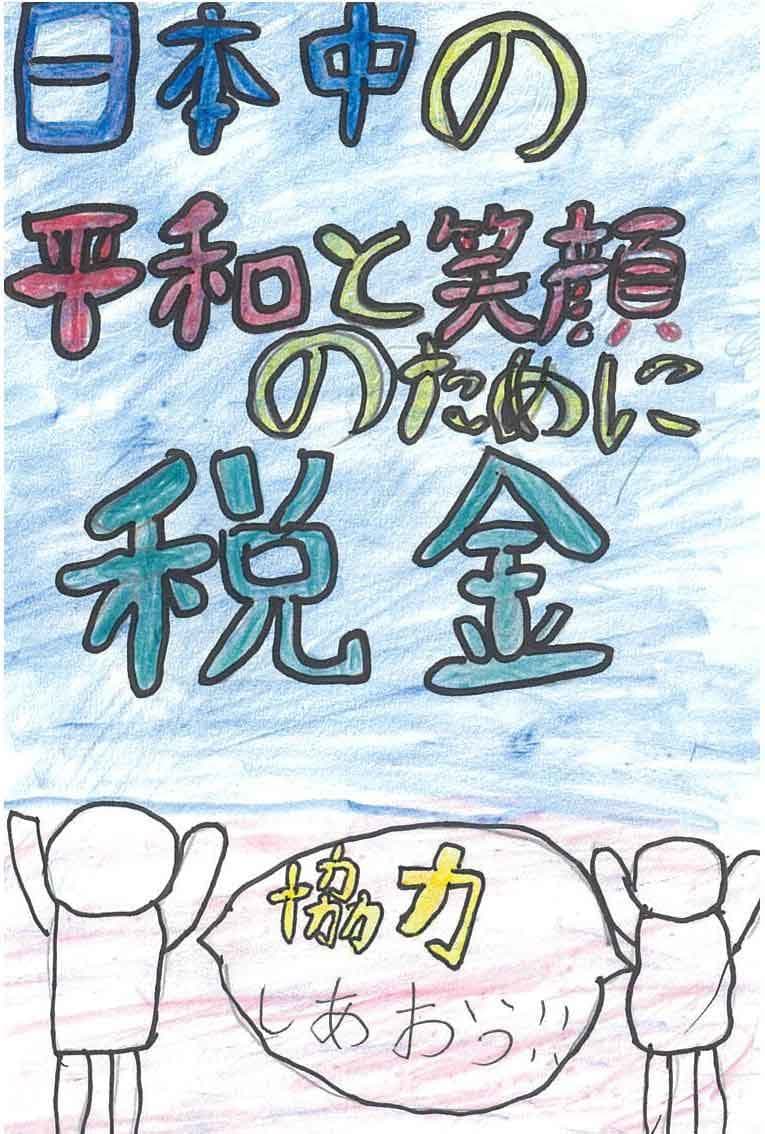 日本中の
平和と笑顔
のために
税金
協力
しあおう!!